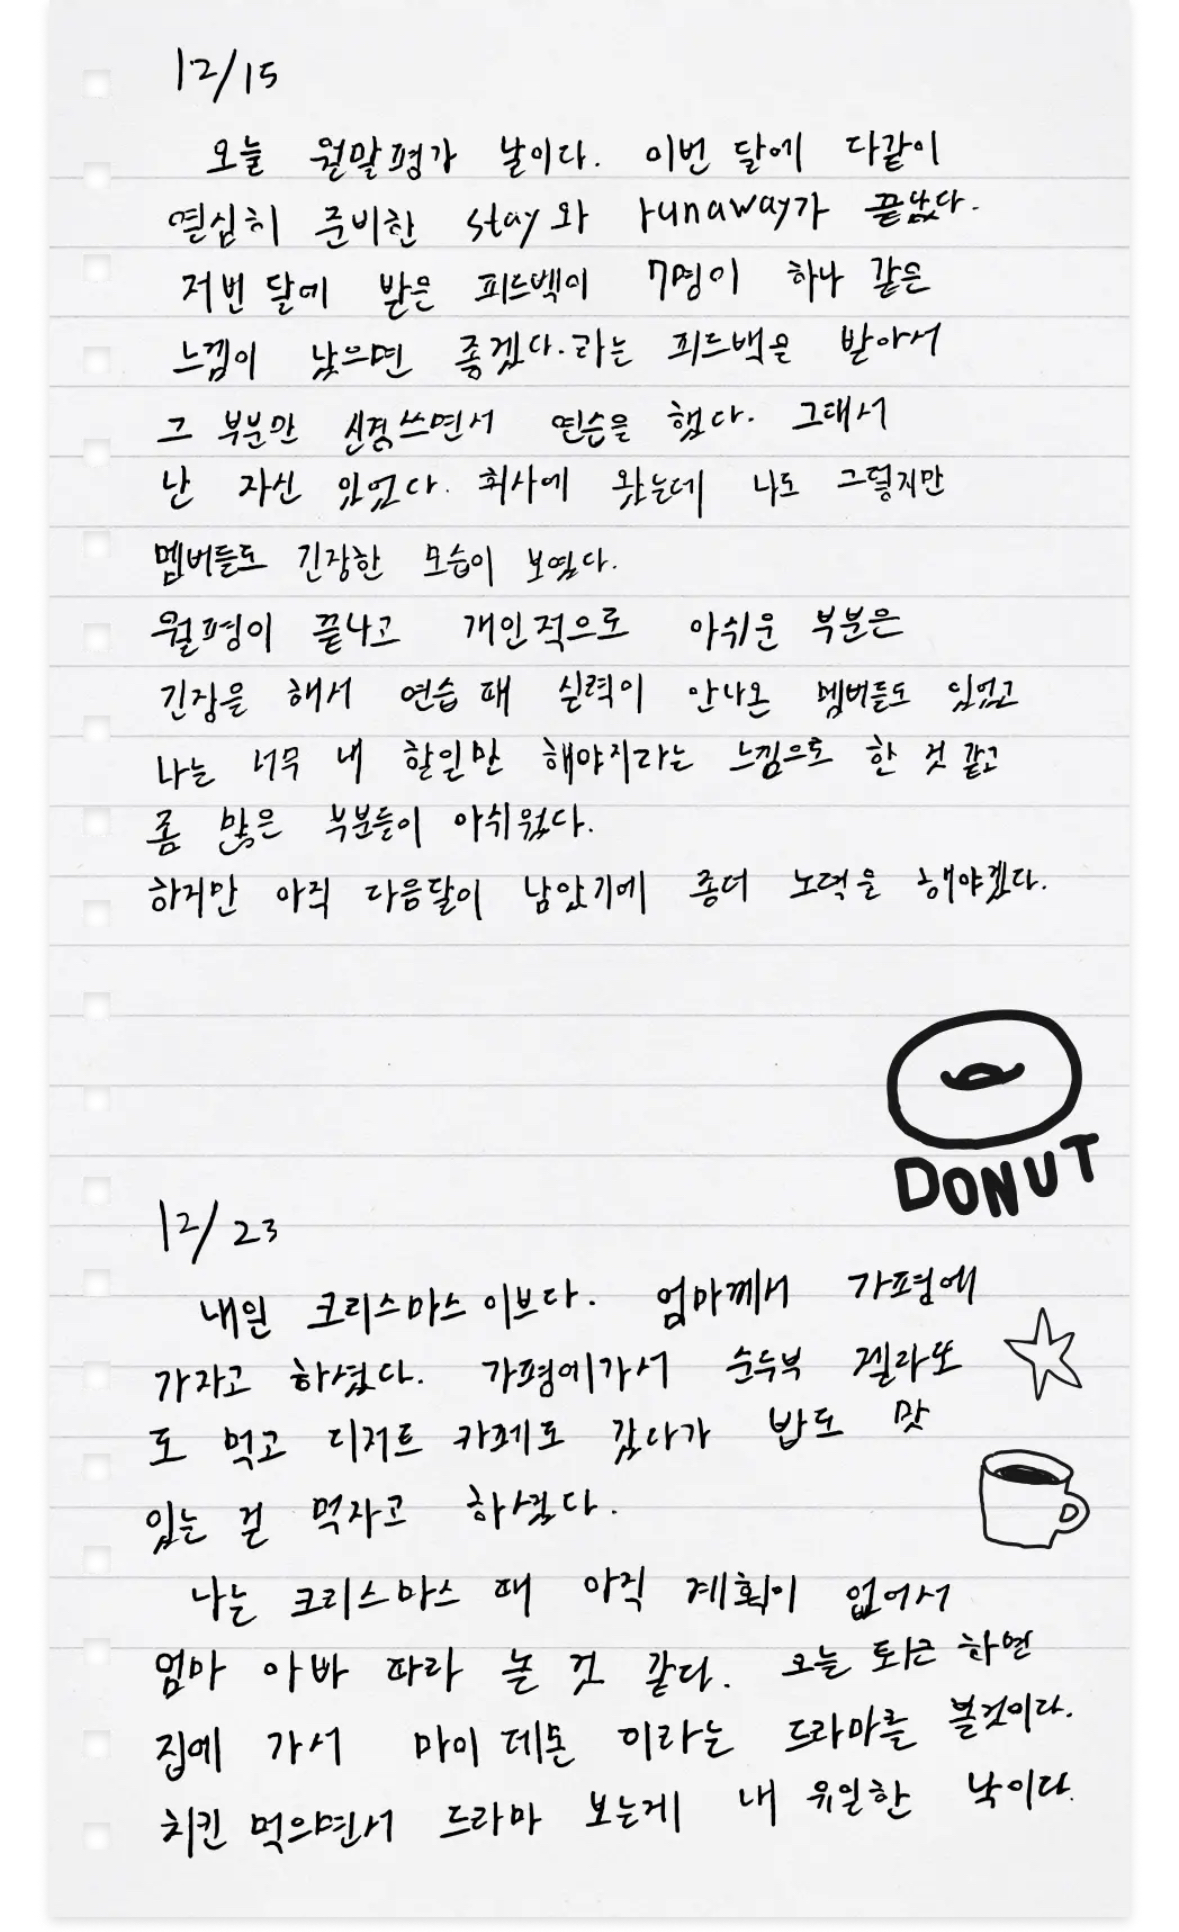 12/15
오늘 월말평가 날이다. 이번 달에 다같이
열심히 준비한 stay와 runaway가 끝났다.
저번 달에 받은 피드백이 7명이 하나 같은
느낌이 났으면 좋겠다.라는 피드백을 받아서
그 부분만 신경쓰면서 연습을 했다. 그래서
난 자신 있었다. 회사에 왔는데 나도 그렇지만
멤버들도 긴장한 모습이 보였다.
월평이 끝나고 개인적으로 아쉬운 부분은
긴장을 해서 연습 때 실력이 안나온 멤버들도 있었고
나는 너무 내 할일만 해야지라는 느낌으로 한 것 같고
좀 많은 부분들이 아쉬웠다.
하지만 아직 다음달이 남았기에 좀더 노력을 해야겠다.
DONUT
12/23
내일 크리스마스 이브다. 엄마께서 가평에
가자고 하셨다. 가평에가서 순두부 젤라또
도 먹고 디저트 카페도 갔다가 밥도 맛
있는 걸 먹자고 하셨다.
나는 크리스마스 때 아직 계획이 없어서
엄마 아빠 따라 놀 것 같다. 오늘 퇴근 하면
집에 가서 마이 데몬 이라는 드라마를 볼것이다.
치킨 먹으면서 드라마 보는게 내 유일한 낙이다.